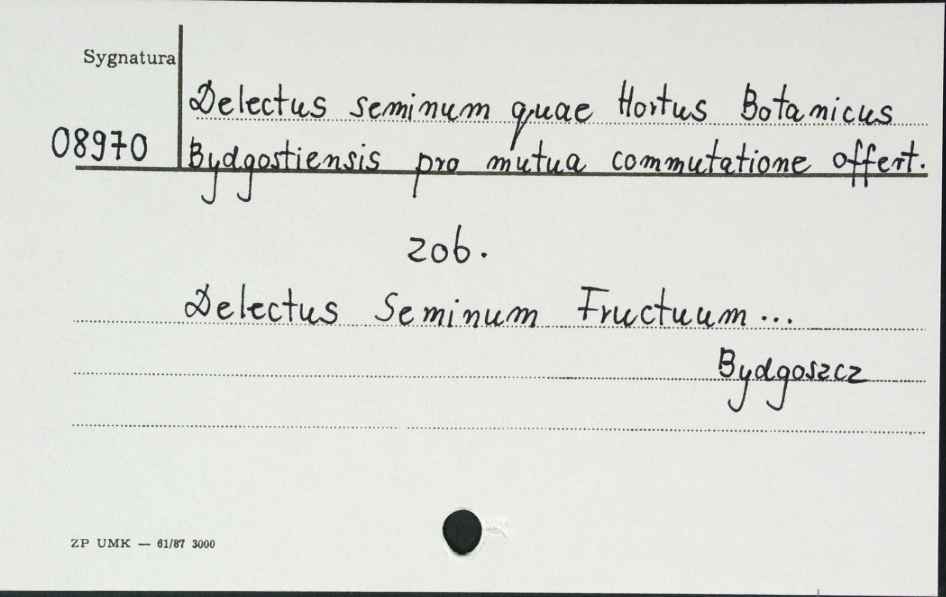 Sygnatura
Delectus seminum quae Hortus Botanicus
08970 Bydgostiensis pro mutua commutatione offert.
zob.
Delectus Seminum Fructuum...
Bydgoszcz
ZP UMK — 61/87 3000